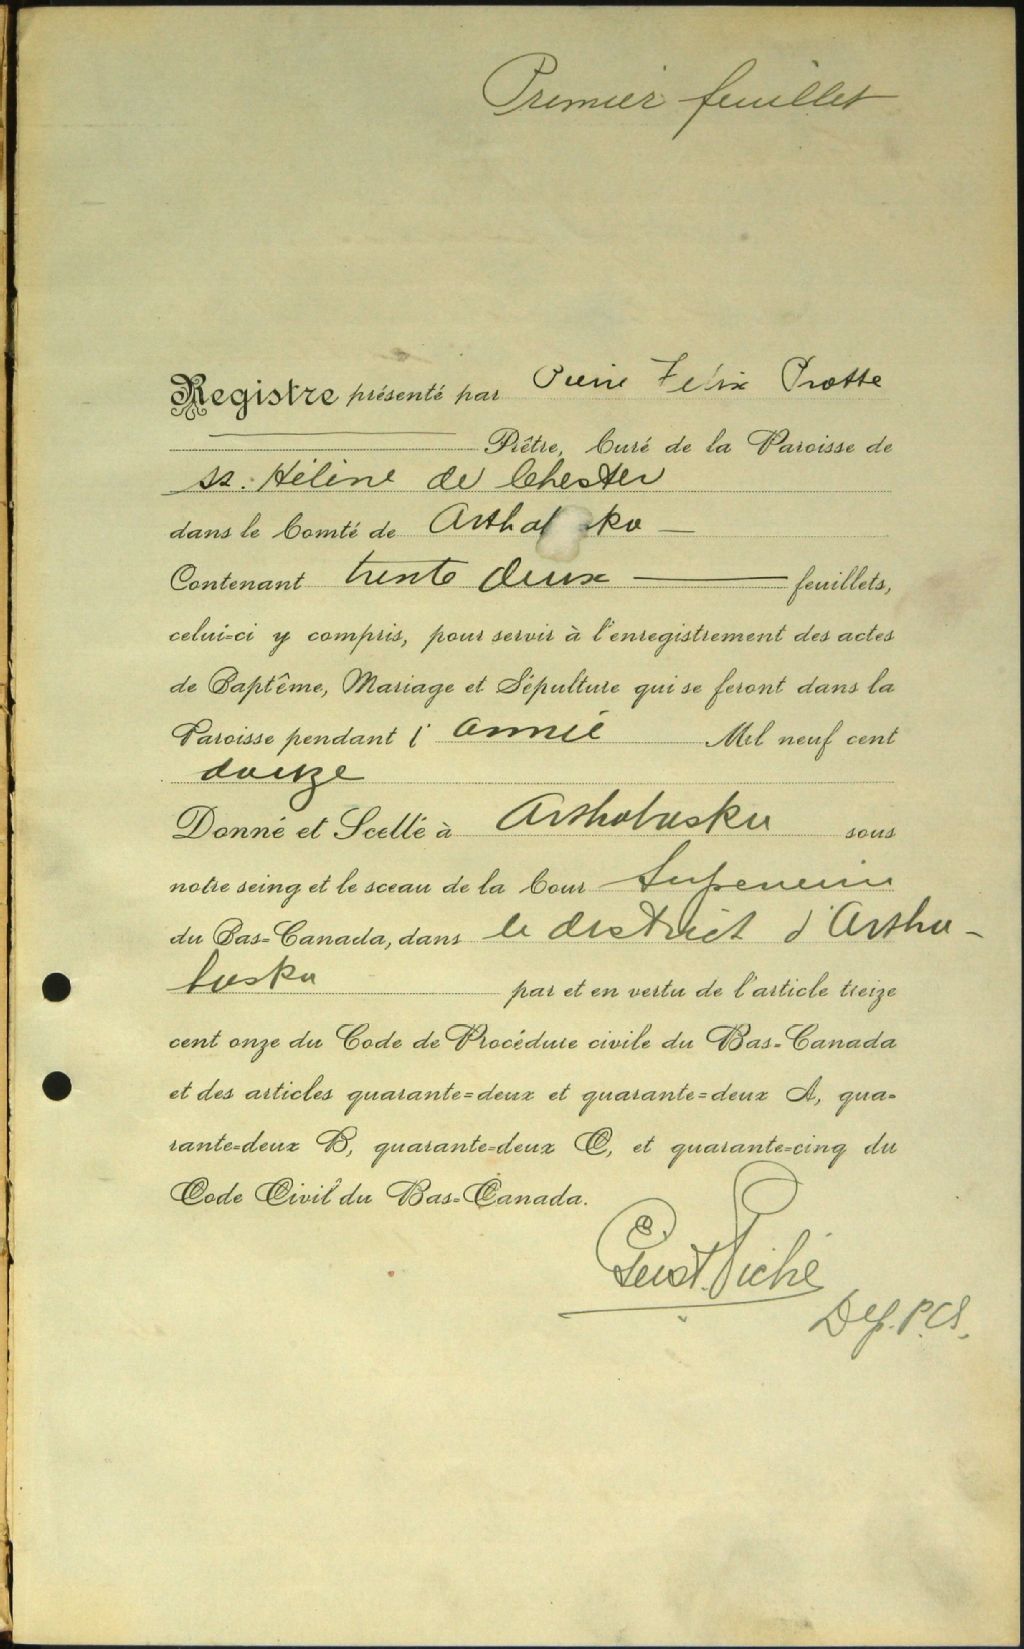 Premier feuillet
Registre présenté par Pierre Félix Protte
Prêtre, Curé de la Paroisse de
St. Hélène de Chester
dans le Comté de Arthabaska
Contenant trente deux feuillets,
celui-ci y compris, pour servir à l'enregistrement des actes
de Baptême, Mariage et Sépulture qui se feront dans la
Paroisse pendant l'année Mil neuf cent
douze
Donné et Scellé à Arthabaska sous
notre seing et le sceau de la Cour Superieure
du Bas-Canada, dans le district d'Artha-
baska par et en vertu de l'article treize
cent onze du Code de Procédure civile du Bas-Canada
et des articles quarante-deux et quarante-deux A, qua-
rante-deux B, quarante-deux C, et quarante-cinq du
Code Civil du Bas-Canada.
Piché
Dep. P.C.S.